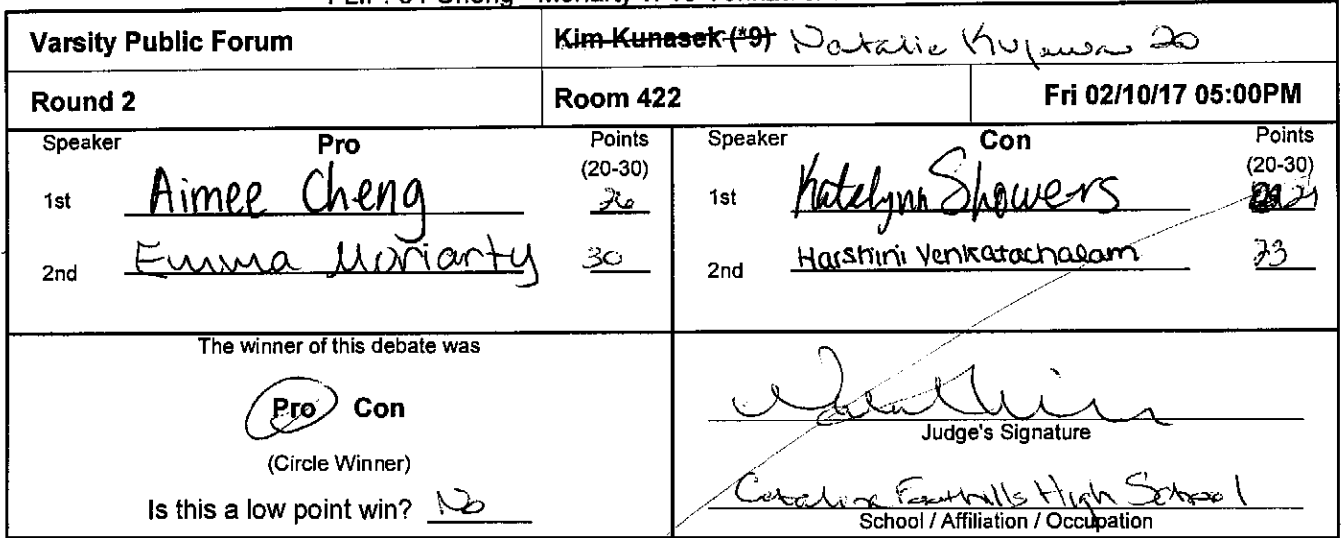 Varsity Public Forum
Kim Kunasek (*9) Natalie 20
Round 2
Room 422
Fri 02/10/17 05:00PM
Speaker Pro Points
(20-30)
1st Aimee Cheng 26
2nd Emma Moriarty 30
Speaker Con Points
(20-30)
1st Katelynn Showers
2nd Harshini Venkatachalam 23
The winner of this debate was
Pro Con
(Circle Winner)
Is this a low point win? No
Judge's Signature
Catalina Foothills High School
School / Affiliation / Occupation